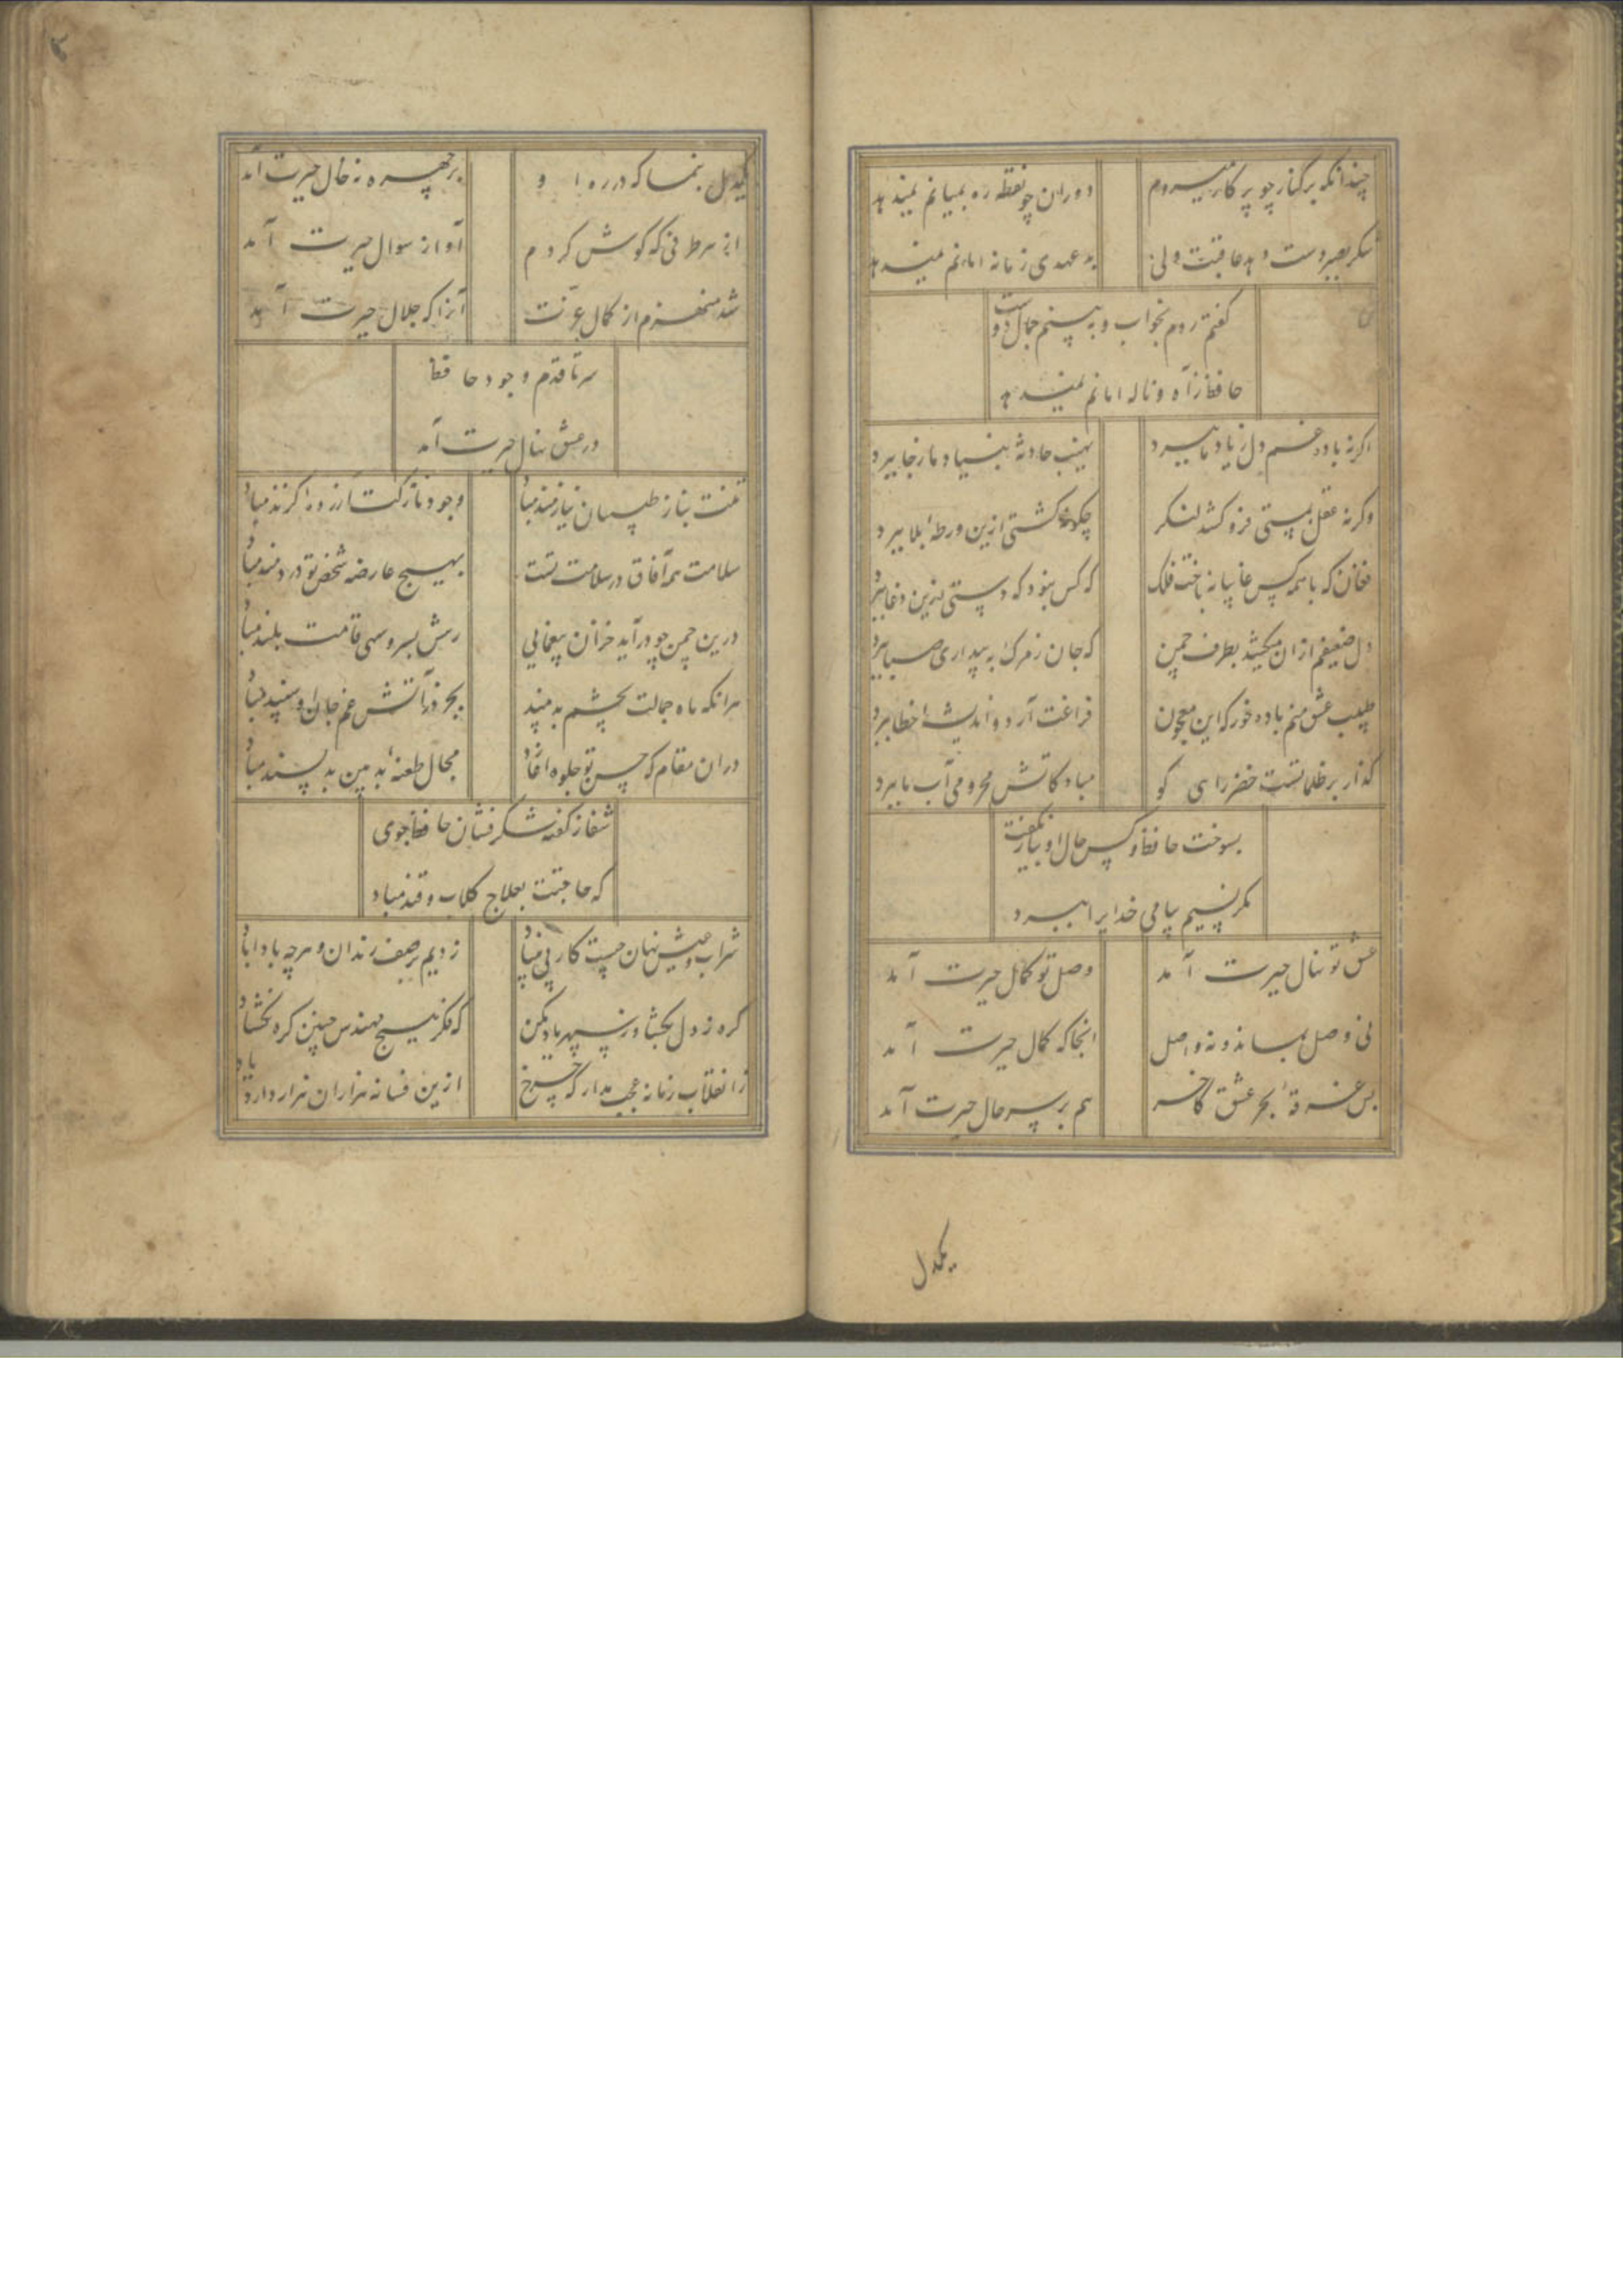 چندانکه برکنار چو پرکار میروم
دوران چو نقطه ره بمیانم نمیدهد
شکر بصبر دست دهد عاقبت ولی
بد عهدی زمانه امانم نمیدهد
گفتم روم بخواب و به بینم جمال دوست
حافظ ز آه و ناله امانم نمیدهد
اگر نه باده غم دل ز یاد ما ببرد
نهیب حادثه بنیاد ما ز جا ببرد
وگر نه عقل بمستی فرو کشد لنگر
چگونه کشتی ازین ورطه بلا ببرد
فغان که با همه کس غایبانه باخت فلک
که کس نبود که دستی ازین دغا ببرد
دل ضعیفم از ان میکشد بطرف چمن
که جان ز مرگ به بیداری صبا ببرد
طبیب عشق منم باده خور که این معجون
فراغت آرد و اندیشه خطا ببرد
گذار بر ظلماتست خضر راهی کو
مباد کاتش محرومی آب ما ببرد
بسوخت حافظ و کس حال او بیار نگفت
مگر نسیم پیامی خدایرا ببرد
عشق تو نهال حیرت آمد
وصل تو کمال حیرت آمد
نی وصل بماند و نه واصل
انجا که کمال حیرت آمد
بس غرقه بحر عشق کاخر
هم بر سر حال حیرت آمد
یکدل
یکدل بنما که در ره او
بر چهره نه خال حیرت آمد
از هر طرفی که گوش کردم
آواز سوال حیرت آمد
شد منهزم از کمال عزت
آنرا که جلال حیرت آمد
سر تا قدم وجود حافظ
در عشق نهال حیرت آمد
تنت بناز طبیبان نیازمند مباد
وجود نازکت آزرده گزند مباد
سلامت همه آفاق در سلامت تست
بهیچ عارضه شخص تو دردمند مباد
درین چمن چو درآید خزان بیغمایی
رهش بسرو سهی قامت بلند مباد
هر انکه ماه جمالت بچشم بد بیند
بجز در آتش غم جان او سپند مباد
دران مقام که حسن تو جلوه آغازد
مجال طعنه بد بین بد پسند مباد
شفا ز گفته شکر فشان حافظ جوی
که حاجتت بعلاج گلاب و قند مباد
شراب و عیش نهان چیست کار بی بنیاد
زدیم بر صف رندان و هر چه بادا باد
گره ز دل بگشا وز سپهر یاد مکن
که فکر هیچ مهندس چنین گره نگشاد
ز انقلاب زمانه عجب مدار که چرخ
ازین فسانه هزاران هزار دارد یاد